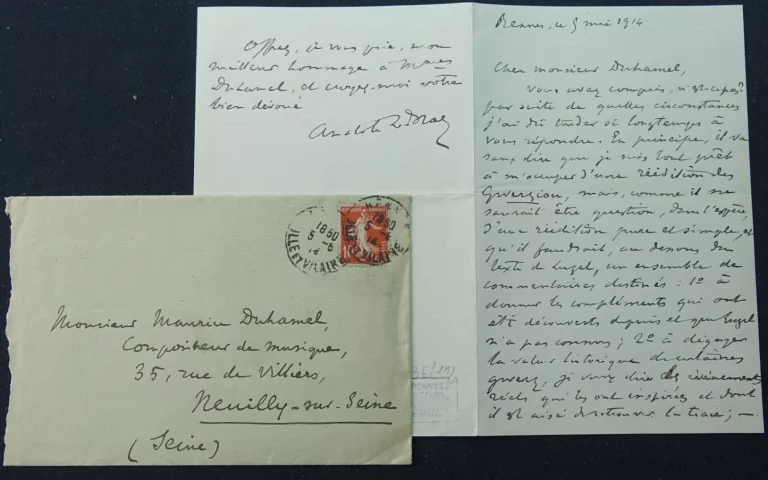 Rennes, ce 5 mai 1914
Cher monsieur Duhamel,
Vous avez compris, n'est-ce pas,
par suite de quelles circonstances
j'ai dû tarder si longtemps à
vous répondre. En principe, il va
sans dire que je suis tout prêt
à m'occuper d'une réédition des
Gwerziou, mais, comme il ne
saurait être question, dans l'espèce,
d'une réédition pure et simple, et
qu'il faudrait, au dessous du
texte de Luzel, un ensemble de
commentaires destinés : 1° à
donner les compléments qui ont
été découverts depuis et que Luzel
n'a pas connus ; 2° à dégager
la valeur historique de certaines
gwerz, je veux dire les événements
réels qui les ont inspirées et dont
il est aisé de retrouver la trace ; —
Offrez, je vous prie, mon
meilleur hommage à Mmes
Duhamel, et croyez-moi votre
bien dévoué
Anatole Le Braz
18 50
5 - 6
14
ILLE ET VILAINE
18 50
5 - 6
14
ILLE ET VILAINE
10
Monsieur Maurice Duhamel,
Compositeur de musique,
35, rue de Villiers,
Neuilly-sur-Seine
(Seine)